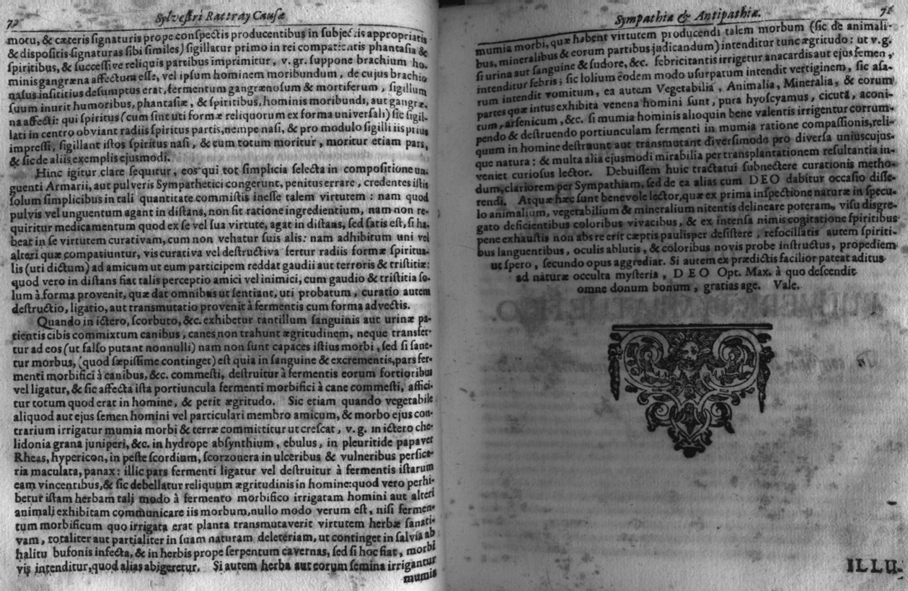 70 Sylvestri Rattray Causæ
motu, & cæteris signaturis prope conspectis producentibus in subjectis appropriatis
& dispositis signaturas sibi similes) sigillatur primo in rei compatientis phantasia &
spiritibus, & successive reliquis partibus imprimitur, v. gr. suppone brachium ho-
minis gangræna affectum esse, vel ipsum hominem moribundum, de cujus brachio
nasus insititius desumptus erat, fermentum gangrænosum & mortiferum, sigillum
suum inurit humoribus, phantasiæ, & spiritibus, hominis moribundi, aut gangræ-
na affecti: qui spiritus (cum sint uti formæ reliquorum ex forma universali) sic sigil-
lati in centro obviant radiis spiritus partis, nempe nasi, & pro modulo sigilli iis prius
impressi, sigillant istos spiritus nasi, & cum totum moritur, moritur etiam pars,
& sic de aliis exemplis ejusmodi.
Hinc igitur clare sequitur, eos qui tot simplicia selecta in compositione un-
guenti Armarii, aut pulveris Sympathetici congerunt, penitus errare, credentes istis
solum simplicibus in tali quantitate commistis inesse talem virtutem: nam quod
pulvis vel unguentum agant in distans, non sit ratione ingredientium, nam non re-
quiritur medicamentum quod ex se vel sua virtute, agat in distans, sed satis est, si ha-
beat in se virtutem curativam, cum non vehatur suis alis: nam adhibitum uni vel
alteri quæ compatiuntur, vis curativa vel destructiva fertur radiis formæ spiritua-
lis (uti dictum) ad amicum ut eum participem reddat gaudii aut terroris & tristitiæ:
quod vero in distans fiat talis perceptio amici vel inimici, cum gaudio & tristitia so-
lum à forma provenit, quæ dat omnibus ut sentiant, uti probatum, curatio autem
destructio, ligatio, aut transmutatio provenit à fermentis cum forma advectis.
Quando in ictero, scorbuto, &c. exhibetur tantillum sanguinis aut urinæ pa-
tientis cibis commixtum canibus, canes non trahunt ægritudinem, neque transfer-
tur ad eos (ut falso putant nonnulli) nam non sunt capaces istius morbi, sed si sane-
tur morbus, (quod sæpissime continget) est quia in sanguine & excrementis, pars fer-
menti morbifici à canibus, &c. commesti, destruitur à fermentis eorum fortioribus
vel ligatur, & sic affecta ista portiuncula fermenti morbifici à cane commesti, affici-
tur totum quod erat in homine, & perit ægritudo. Sic etiam quando vegetabile
aliquod aut ejus semen homini vel particulari membro amicum, & morbo ejus con-
trarium irrigatur mumia morbi & terræ committitur ut crescat, v. g. in ictero che-
lidonia grana juniperi, &c. in hydrope absynthium, ebulus, in pleuritide papaver
Rheas, hypericon, in peste scordium, scorzonera in ulceribus & vulneribus persica-
ria maculata, panax: illic pars fermenti ligatur vel destruitur à fermentis istarum
eam vincentibus, & sic debellatur reliquum ægritudinis in homine: quod vero perhi-
betur istam herbam tali modo à fermento morbifico irrigatam homini aut alteri
animali exhibitam communicare iis morbum, nullo modo verum est, nisi fermen-
tum morbificum quo irrigata erat planta transmutaverit virtutem herbæ sanati-
vam, totaliter aut partialiter in suam naturam deleteriam, ut contingit in salvia ab
halitu bufonis infecta, & in herbis prope serpentum cavernas, sed si hoc fiat, morbi
vis intenditur, quod alias abigeretur. Si autem herba aut eorum semina irrigantur
mumia
Sympathiæ & Antipathiæ. 71
mumia morbi, quæ habent virtutem producendi talem morbum (sic de animali-
bus, mineralibus & eorum partibus judicandum) intenditur tunc ægritudo: ut v. g.
si urina aut sanguine & sudore, &c. febricitantis irrigetur anacardis aut ejus semen,
intenditur febris: sic lolium eodem modo usurpatum intendit vertiginem, sic asa-
rum intendit vomitum, ea autem Vegetabilia, Animalia, Mineralia, & eorum
partes quæ intus exhibita venena homini sunt, pura hyoscyamus, cicuta, aconi-
tum, arsenicum, &c. si mumia hominis alioquin bene valentis irrigentur corrum-
pendo & destruendo portiunculam fermenti in mumia ratione compassionis, reli-
quum in homine destruunt aut transmutant diversimodo pro diversa uniuscujus-
que natura: & multa alia ejusmodi mirabilia per transplantationem resultantia in-
veniet curiosus lector. Debuissem huic tractatui subnectere curationis metho-
dum, clariorem per Sympathiam, sed de ea alias cum DEO dabitur occasio disse-
rendi. Atque hæc sunt benevole lector, quæ ex prima inspectione naturæ in specu-
lo animalium, vegetabilium & mineralium nitentis delineare poteram, visu disgre-
gato deficientibus coloribus vivacibus, & ex intensa nimis cogitatione spiritibus
pene exhaustis non abs re erit cæptis paulisper desistere, refocillatis autem spiriti-
bus languentibus, oculis ablutis, & coloribus novis probe instructus, propediem
ut spero, secundo opus aggrediar. Si autem ex prædictis facilior pateat aditus
ad naturæ occulta mysteria, DEO Opt. Max. à quo descendit
omne donum bonum, gratias age. Vale.
ILLU-